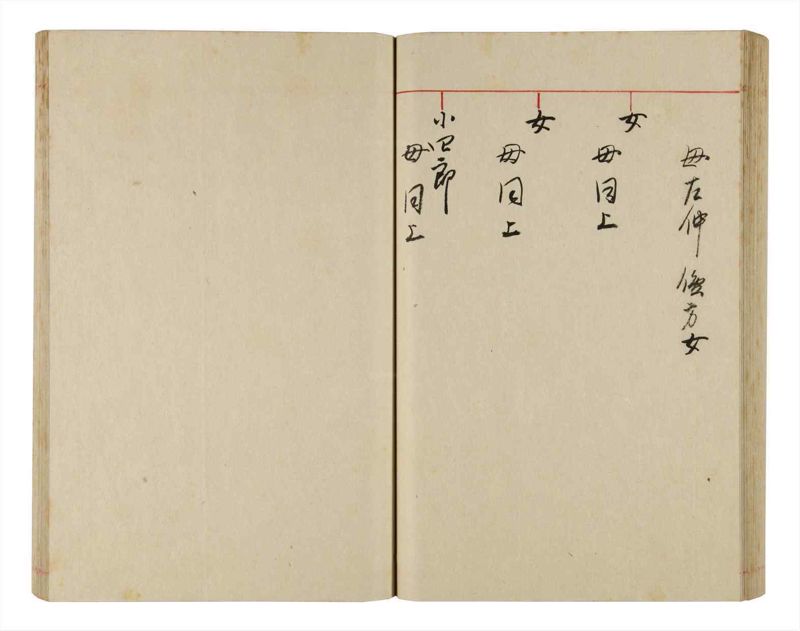 母左仲儉芳女
女
母同上
女
母同上
小四郎
母同上